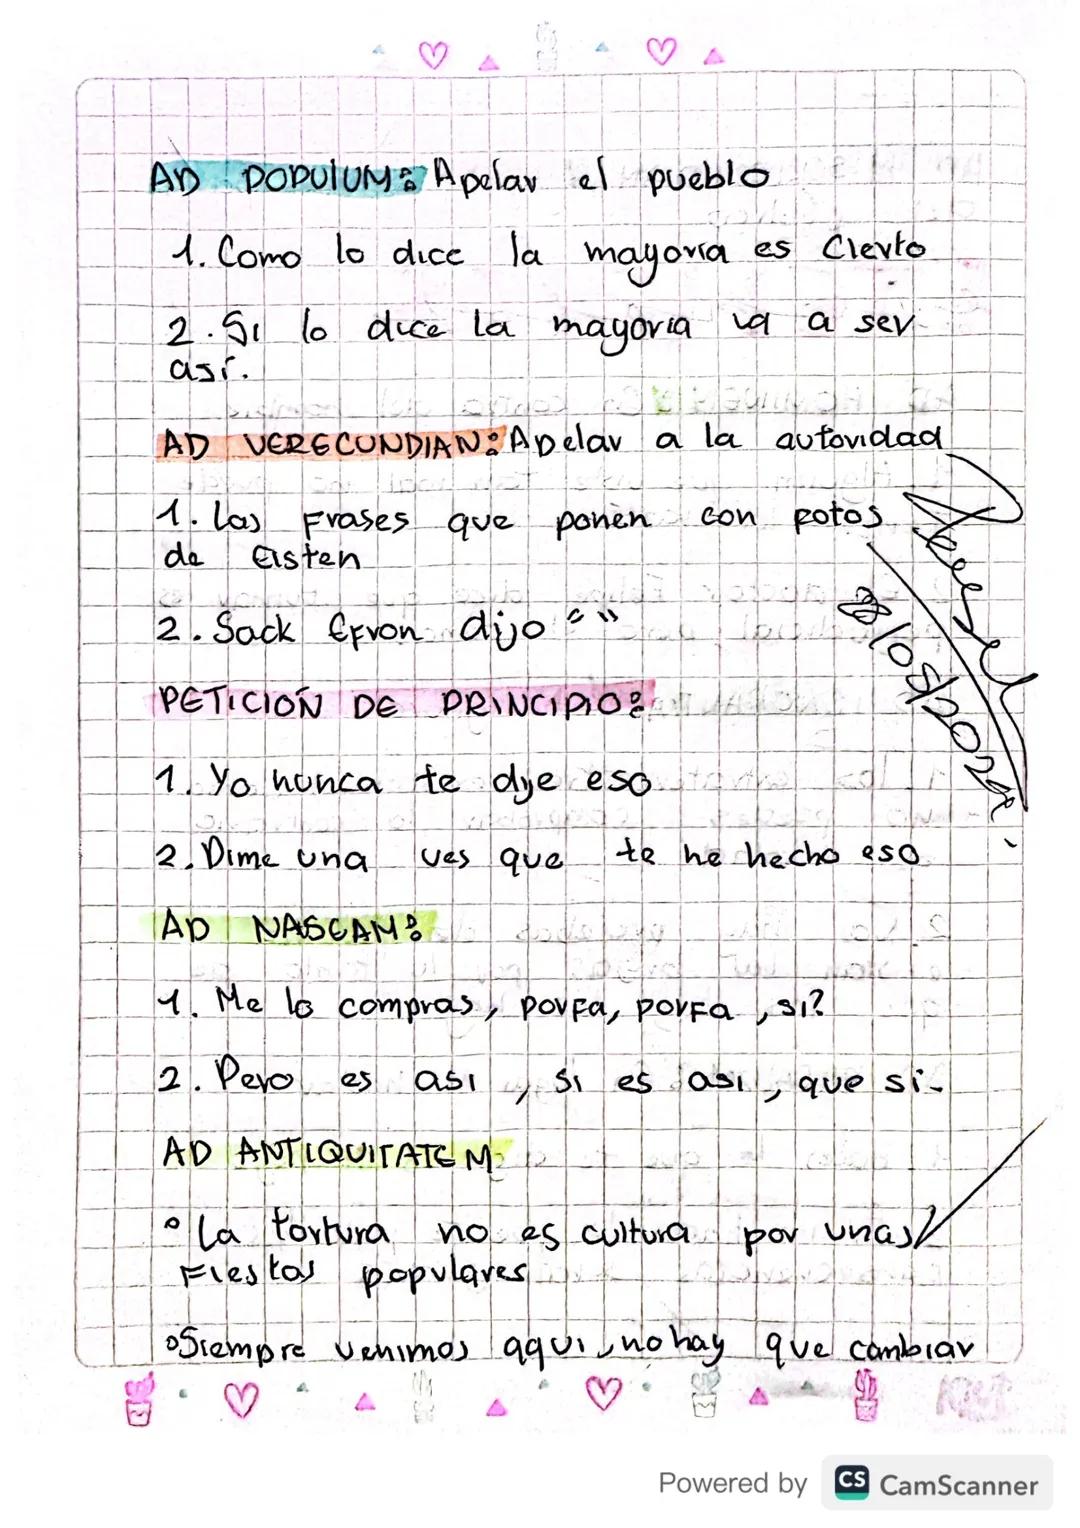 AD POPULUM: Apelar el pueblo
1. Como lo dice la mayoría es Cierto
2. Si lo dice la mayoria va a ser
así.
AD VERECUNDIAN: Apelar a la autoridad
1. Las Frases que ponen con fotos
de Eisten
2. Sack Efron dijo " "
PETICIÓN DE PRINCIPIO:
1. Yo nunca te dije eso
2. Dime una ves que te he hecho eso
AD NASCAM:
1. Me lo compras, porfa, porfa, si?
2. Pero es asi, si es asi, que si.
AD ANTIQUITATEM:
° La tortura no es cultura por unas
Fiestas populares
° Siempre venimos aqui, no hay que cambiar
Powered by CS CamScanner